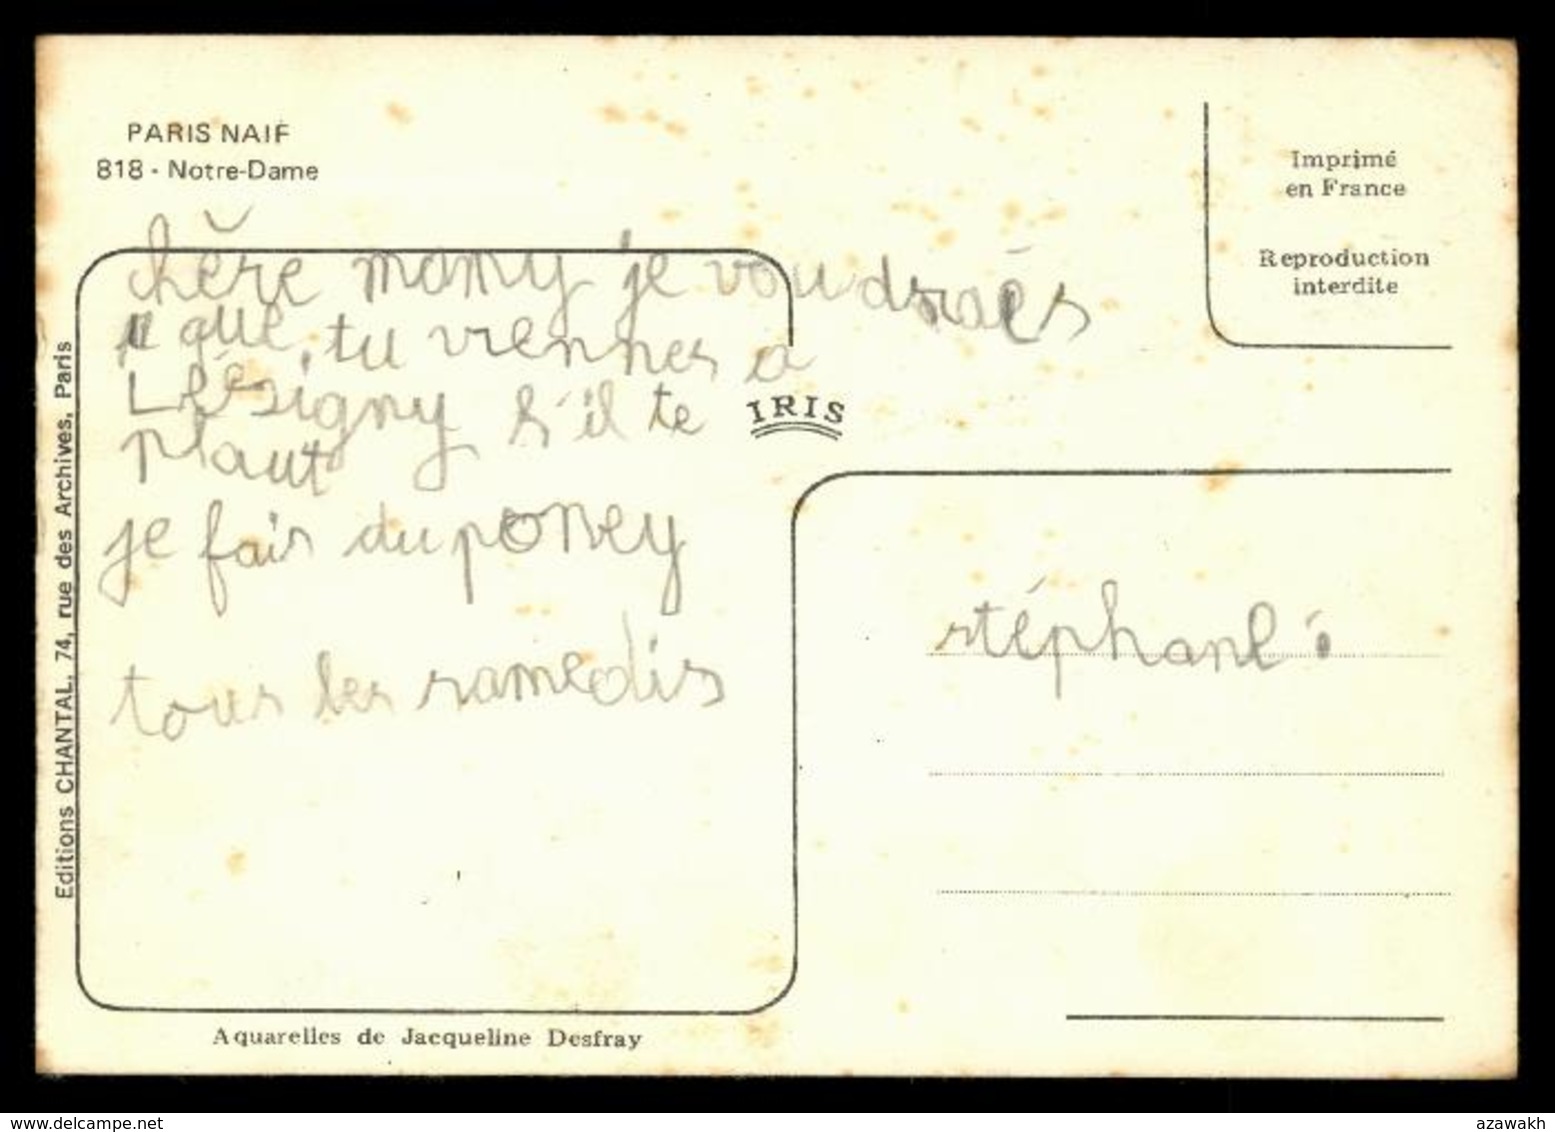 PARIS NAIF
818 - Notre-Dame
Imprimé
en France
Reproduction
interdite
chère mamy je voudraies
que tu viennes a
Lésigny s'il te
plaut
je fais du poney
tous les samedis
IRIS
stéphanl
Editions CHANTAL, 74, rue des Archives, Paris
Aquarelles de Jacqueline Desfray
www.delcampe.net
azawakh